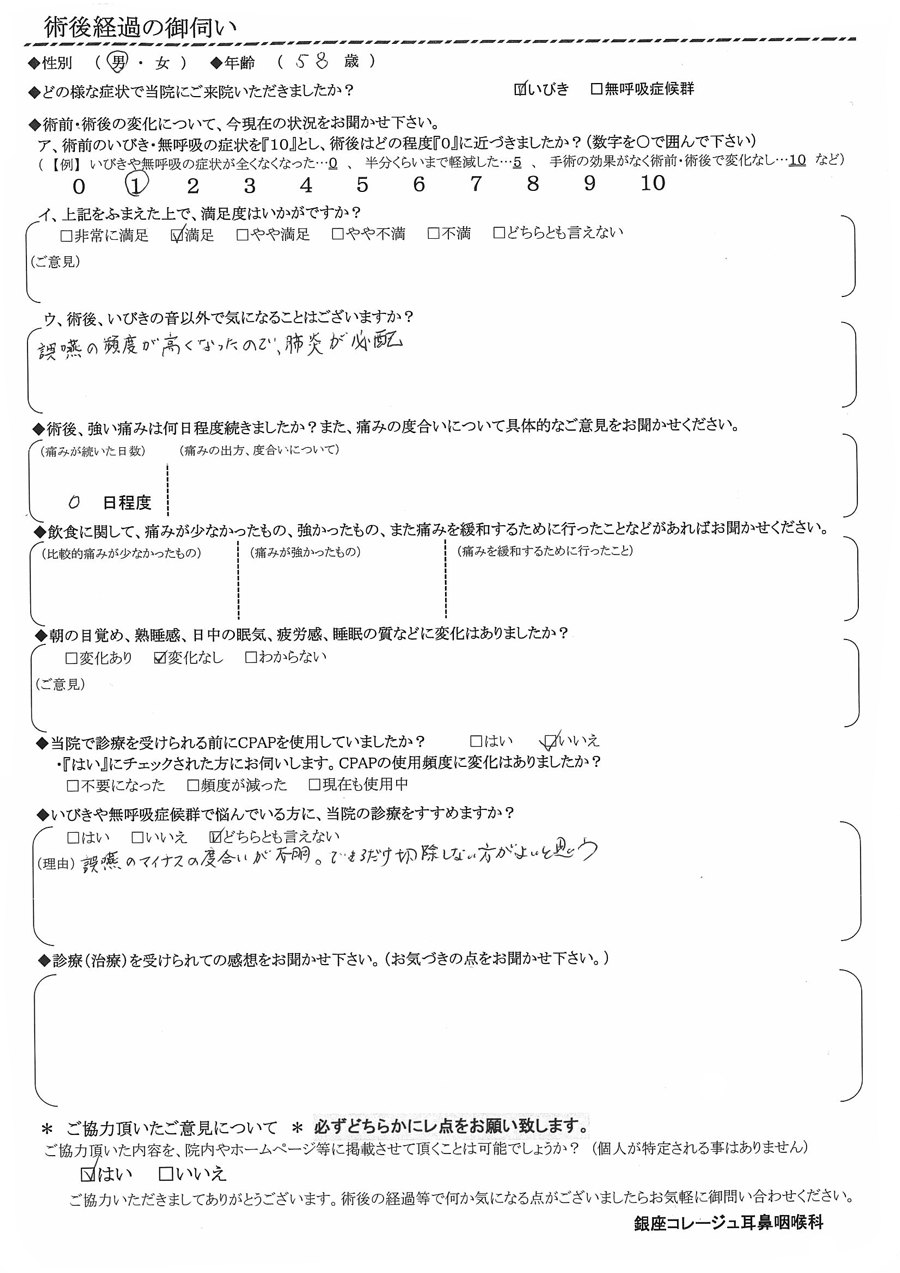 術後経過の御伺い
◆性別 （ 男 ・ 女 ） ◆年齢 （ 58 歳 ）
◆どの様な症状で当院にご来院いただきましたか？ ☑いびき □無呼吸症候群
◆術前・術後の変化について、今現在の状況をお聞かせ下さい。
ア、術前のいびき・無呼吸の症状を『10』とし、術後はどの程度『0』に近づきましたか？(数字を〇で囲んで下さい)
（【例】 いびきや無呼吸の症状が全くなくなった…0 、 半分くらいまで軽減した…5 、 手術の効果がなく術前・術後で変化なし…10 など）
0 1 2 3 4 5 6 7 8 9 10
イ、上記をふまえた上で、満足度はいかがですか？
□非常に満足 ☑満足 □やや満足 □やや不満 □不満 □どちらとも言えない
(ご意見)
ウ、術後、いびきの音以外で気になることはございますか？
誤嚥の頻度が高くなったので、肺炎が心配
◆術後、強い痛みは何日程度続きましたか？また、痛みの度合いについて具体的なご意見をお聞かせください。
(痛みが続いた日数) (痛みの出方、度合いについて)
0 日程度
◆飲食に関して、痛みが少なかったもの、強かったもの、また痛みを緩和するために行ったことなどがあればお聞かせください。
(比較的痛みが少なかったもの) (痛みが強かったもの) (痛みを緩和するために行ったこと)
◆朝の目覚め、熟睡感、日中の眠気、疲労感、睡眠の質などに変化はありましたか？
□変化あり ☑変化なし □わからない
(ご意見)
◆当院で診療を受けられる前にCPAPを使用していましたか？ □はい ☑いいえ
・『はい』にチェックされた方にお伺いします。CPAPの使用頻度に変化はありましたか？
□不要になった □頻度が減った □現在も使用中
◆いびきや無呼吸症候群で悩んでいる方に、当院の診療をすすめますか？
□はい □いいえ ☑どちらとも言えない
(理由) 誤嚥のマイナスの度合いが不明。できるだけ切除しない方がよいと思う
◆診療(治療)を受けられての感想をお聞かせ下さい。(お気づきの点をお聞かせ下さい。)
＊ ご協力頂いたご意見について ＊ 必ずどちらかにレ点をお願い致します。
ご協力頂いた内容を、院内やホームページ等に掲載させて頂くことは可能でしょうか？ (個人が特定される事はありません)
☑はい □いいえ
ご協力いただきましてありがとうございます。術後の経過等で何か気になる点がございましたらお気軽に御問い合わせください。
銀座コレージュ耳鼻咽喉科